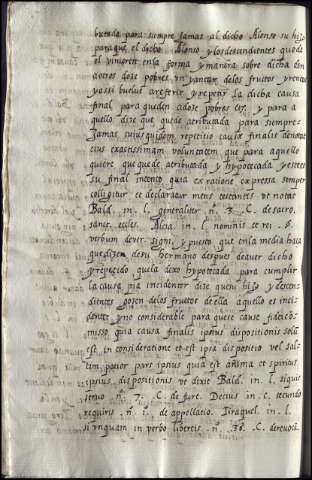 butada para siempre jamas al dicho Alonso su hijo
para que el dicho Alonso y los descendientes que de
el vinieren en la forma y manera sobre dicha den
a otros doze pobres un jantar de los fructos y rentas
y assi buelve a referir y repetir la dicha causa
final para que den a doze pobres etc. y para a
quello dize que quede atributada para siempre
jamas cuius quidem repetitio cause finalis denotat
eius exactissimam voluntatem que para aquello
quiere que quede atributada y hypotecada y este es
su final intento quia ex ratione expressa semper
colligitur et declaratur mens testantis ut notat
Bald. in. l. generaliter n. 3. C. de sacro.
sanct. eccles. Alcia. in l. nominis et rei. §.
verbum dever. signi. y puesto que en la media haca
que dizen de su hermano despues de aver dicho
y repetido que la dexo hypotecada para cumplir
la causa pia incidenter dize que su hijo y descen
dientes gosen de los fructos de ella aquello es inci
denter y no considerable para que ese cause fideico
misso quia causa finalis ipsius dispositionis solum
est in consideratione et est ipsa dispositio vel sal-
tim potior pars ipsius quia est anima et spiritus
ipsius dispositionis ut dixit Bald. in. l. siquis
servo n. 7. C. de fure. Decius in c. secundo
requiris. n. i. de appellatio. Tiraquel. in. l.
si unquam in verbo libertis. n. 38. C. de revoci.